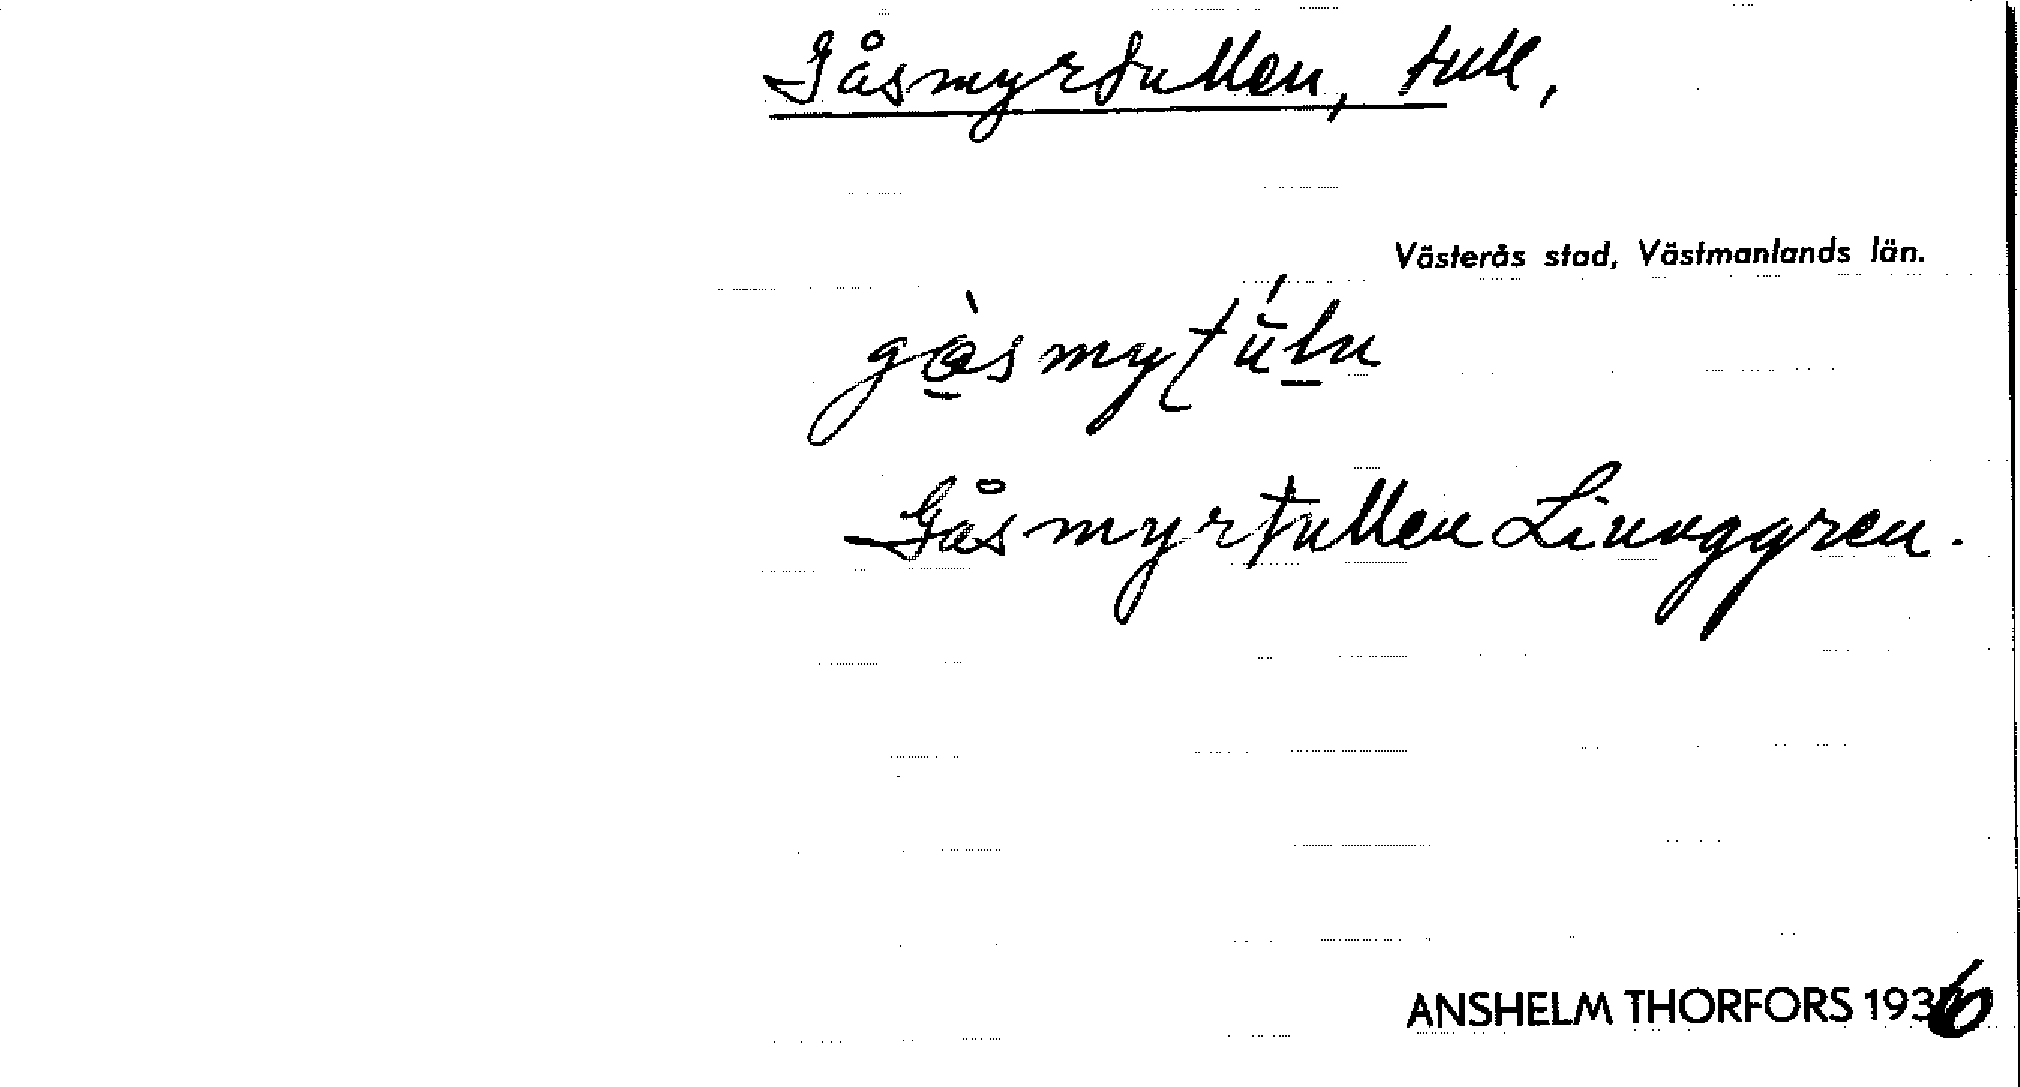 Gåsmyrtullen, tull,
Västerås stad, Västmanlands län.
gåsmytúln
Gåsmyrtullen Linnggren.
ANSHELM THORFORS 1936